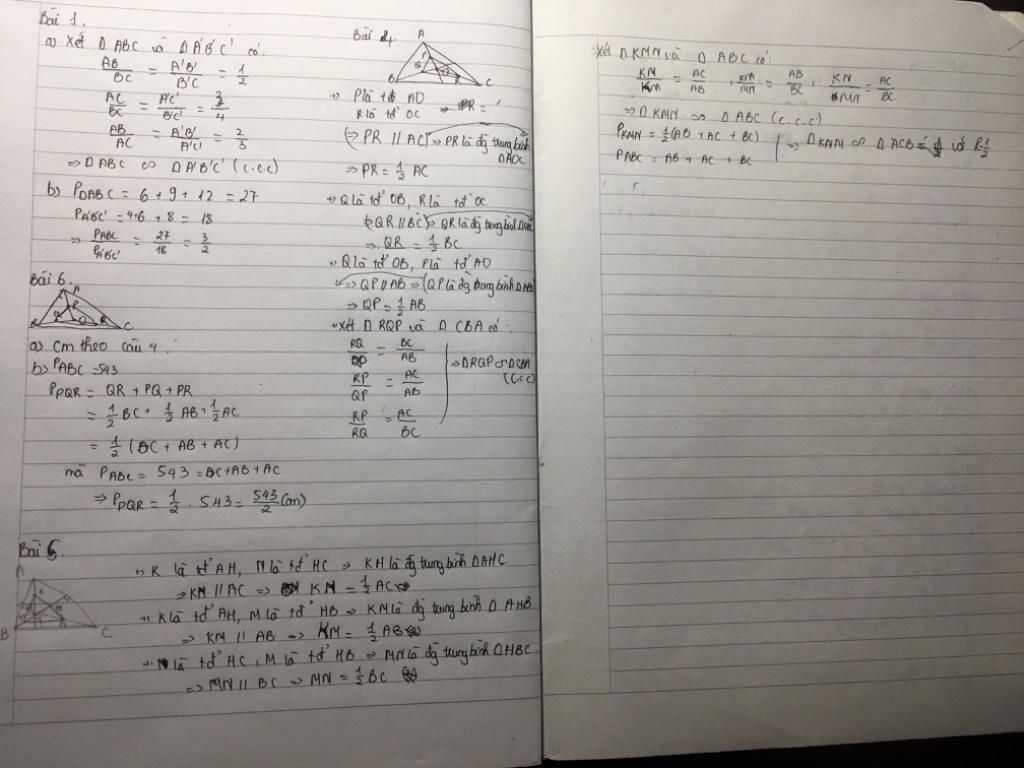 Bài 1.
a) Xét Δ ABC và Δ A'B'C' có:
AB/BC = A'B'/B'C = 1/2
AC/BC = A'C'/B'C' = 3/4
AB/AC = A'B'/A'C' = 2/3
⇒ Δ ABC ∽ Δ A'B'C' (c.c.c)
b) PΔABC = 6 + 9 + 12 = 27
PA'B'C' = 4+6 + 8 = 18
⇒ PABC/PA'B'C' = 27/18 = 3/2
Bài 6.
A
B Q R C
a) Cm theo câu 4.
b) PABC = 543
PPQR = QR + PQ + PR
= 1/2 BC + 1/2 AB + 1/2 AC
= 1/2 (BC + AB + AC)
mà PABC = 543 = BC+AB+AC
⇒ PPQR = 1/2 . 543 = 543/2 (cm)
Bài 4.
A
B C
P là tđ AO
R là tđ OC ⇒ PR =
(⇒ PR // AC) ⇒ PR là đg trung bình
ΔAOC
⇒ PR = 1/2 AC
Q là tđ OB, R là tđ OC
(QR // BC) ⇒ QR là đg trung bình
⇒ QR = 1/2 BC
Q là tđ OB, P là tđ AO
⇒ QP // AB ⇒ (QP là đg trung bình
⇒ QP = 1/2 AB
Xét Δ RQP và Δ CBA có:
RQ/QP = BC/AB
RP/QP = AC/AB
RP/RQ = AC/BC
⇒ ΔRQP ∽ ΔCBA
(c.c.c)
Bài 5.
A
B C
K là tđ AH, N là tđ HC ⇒ KH là đg trung bình ΔAHC
⇒ KN // AC ⇒ KN = 1/2 AC
K là tđ AH, M là tđ HB ⇒ KM là đg trung bình Δ AHB
⇒ KM // AB ⇒ KM = 1/2 AB
N là tđ HC, M là tđ HB ⇒ MN là đg trung bình ΔHBC
⇒ MN // BC ⇒ MN = 1/2 BC
Xét ΔKMN và Δ ABC có:
KN/KM = AC/AB, KM/MN = AB/BC, KN/MN = AC/BC
⇒ ΔKMN ∽ ΔABC (c.c.c)
PKMN = 1/2 (AB + AC + BC)
PABC = AB + AC + BC
⇒ ΔKNM ∽ ΔACB